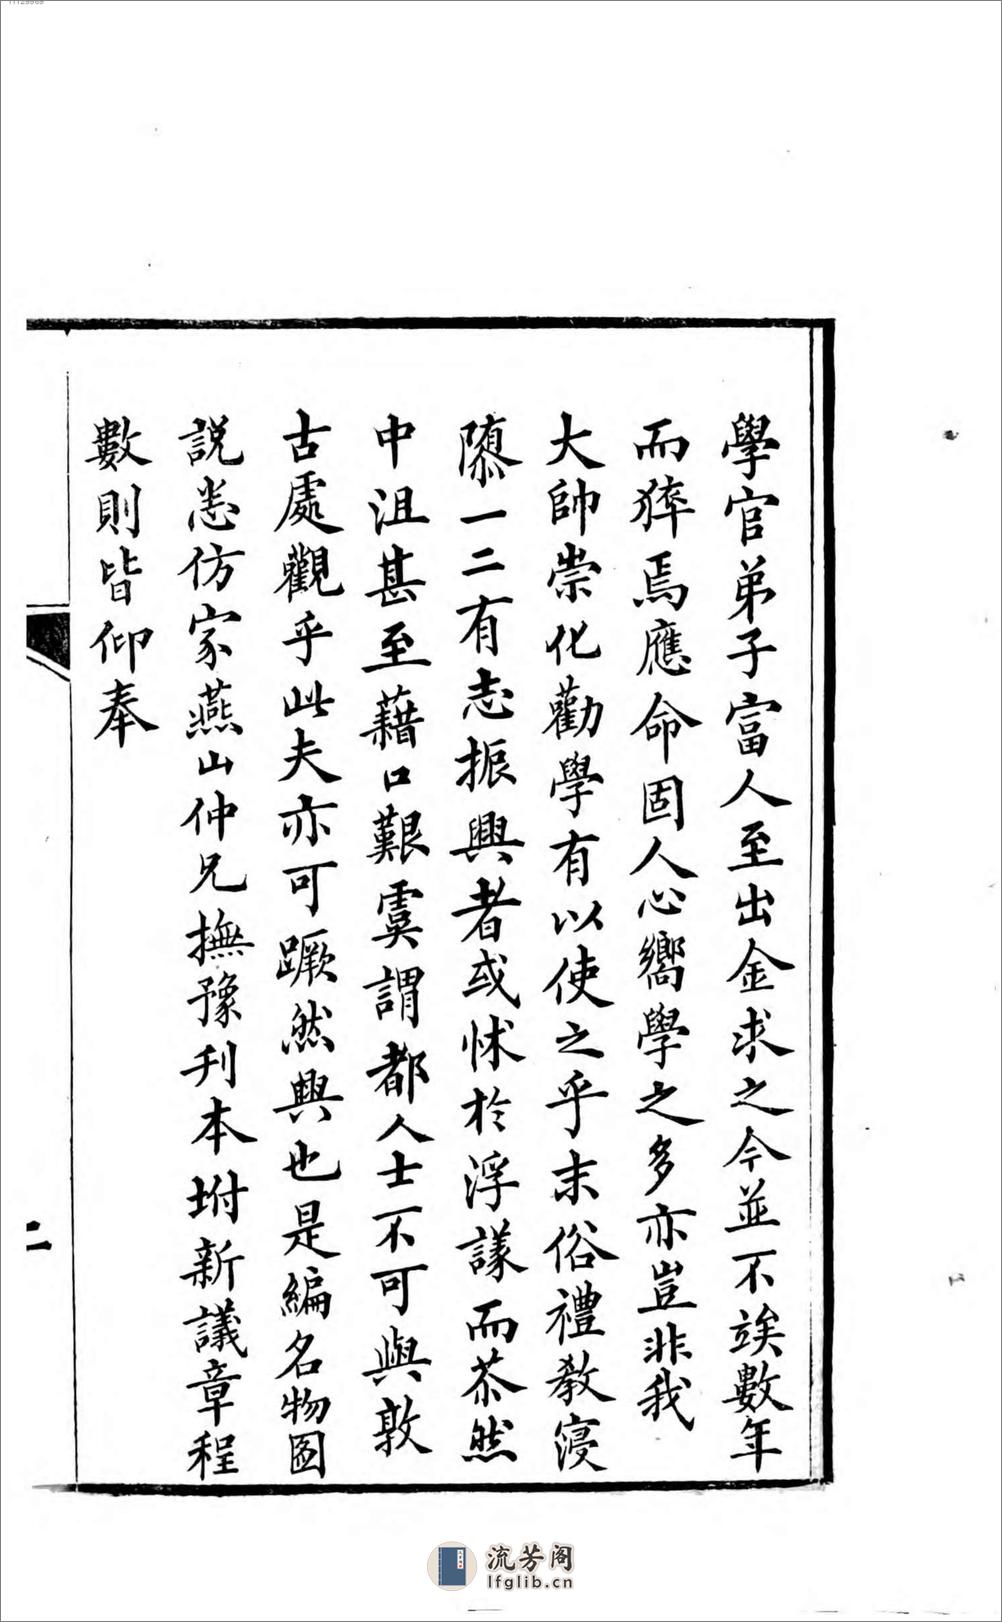 學官弟子富人至出金求之今並不竢數年
而猝焉應命固人心嚮學之多亦豈非我
大帥崇化勸學有以使之乎末俗禮教寖
隳一二有志振興者或怵於浮議而苶然
中沮甚至藉口艱虞謂都人士不可與敦
古處觀乎此夫亦可蹶然興也是編名物圖
說悉仿家燕山仲兄撫豫刋本坿新議章程
數則皆仰奉
二
流芳阁
lfglib.cn